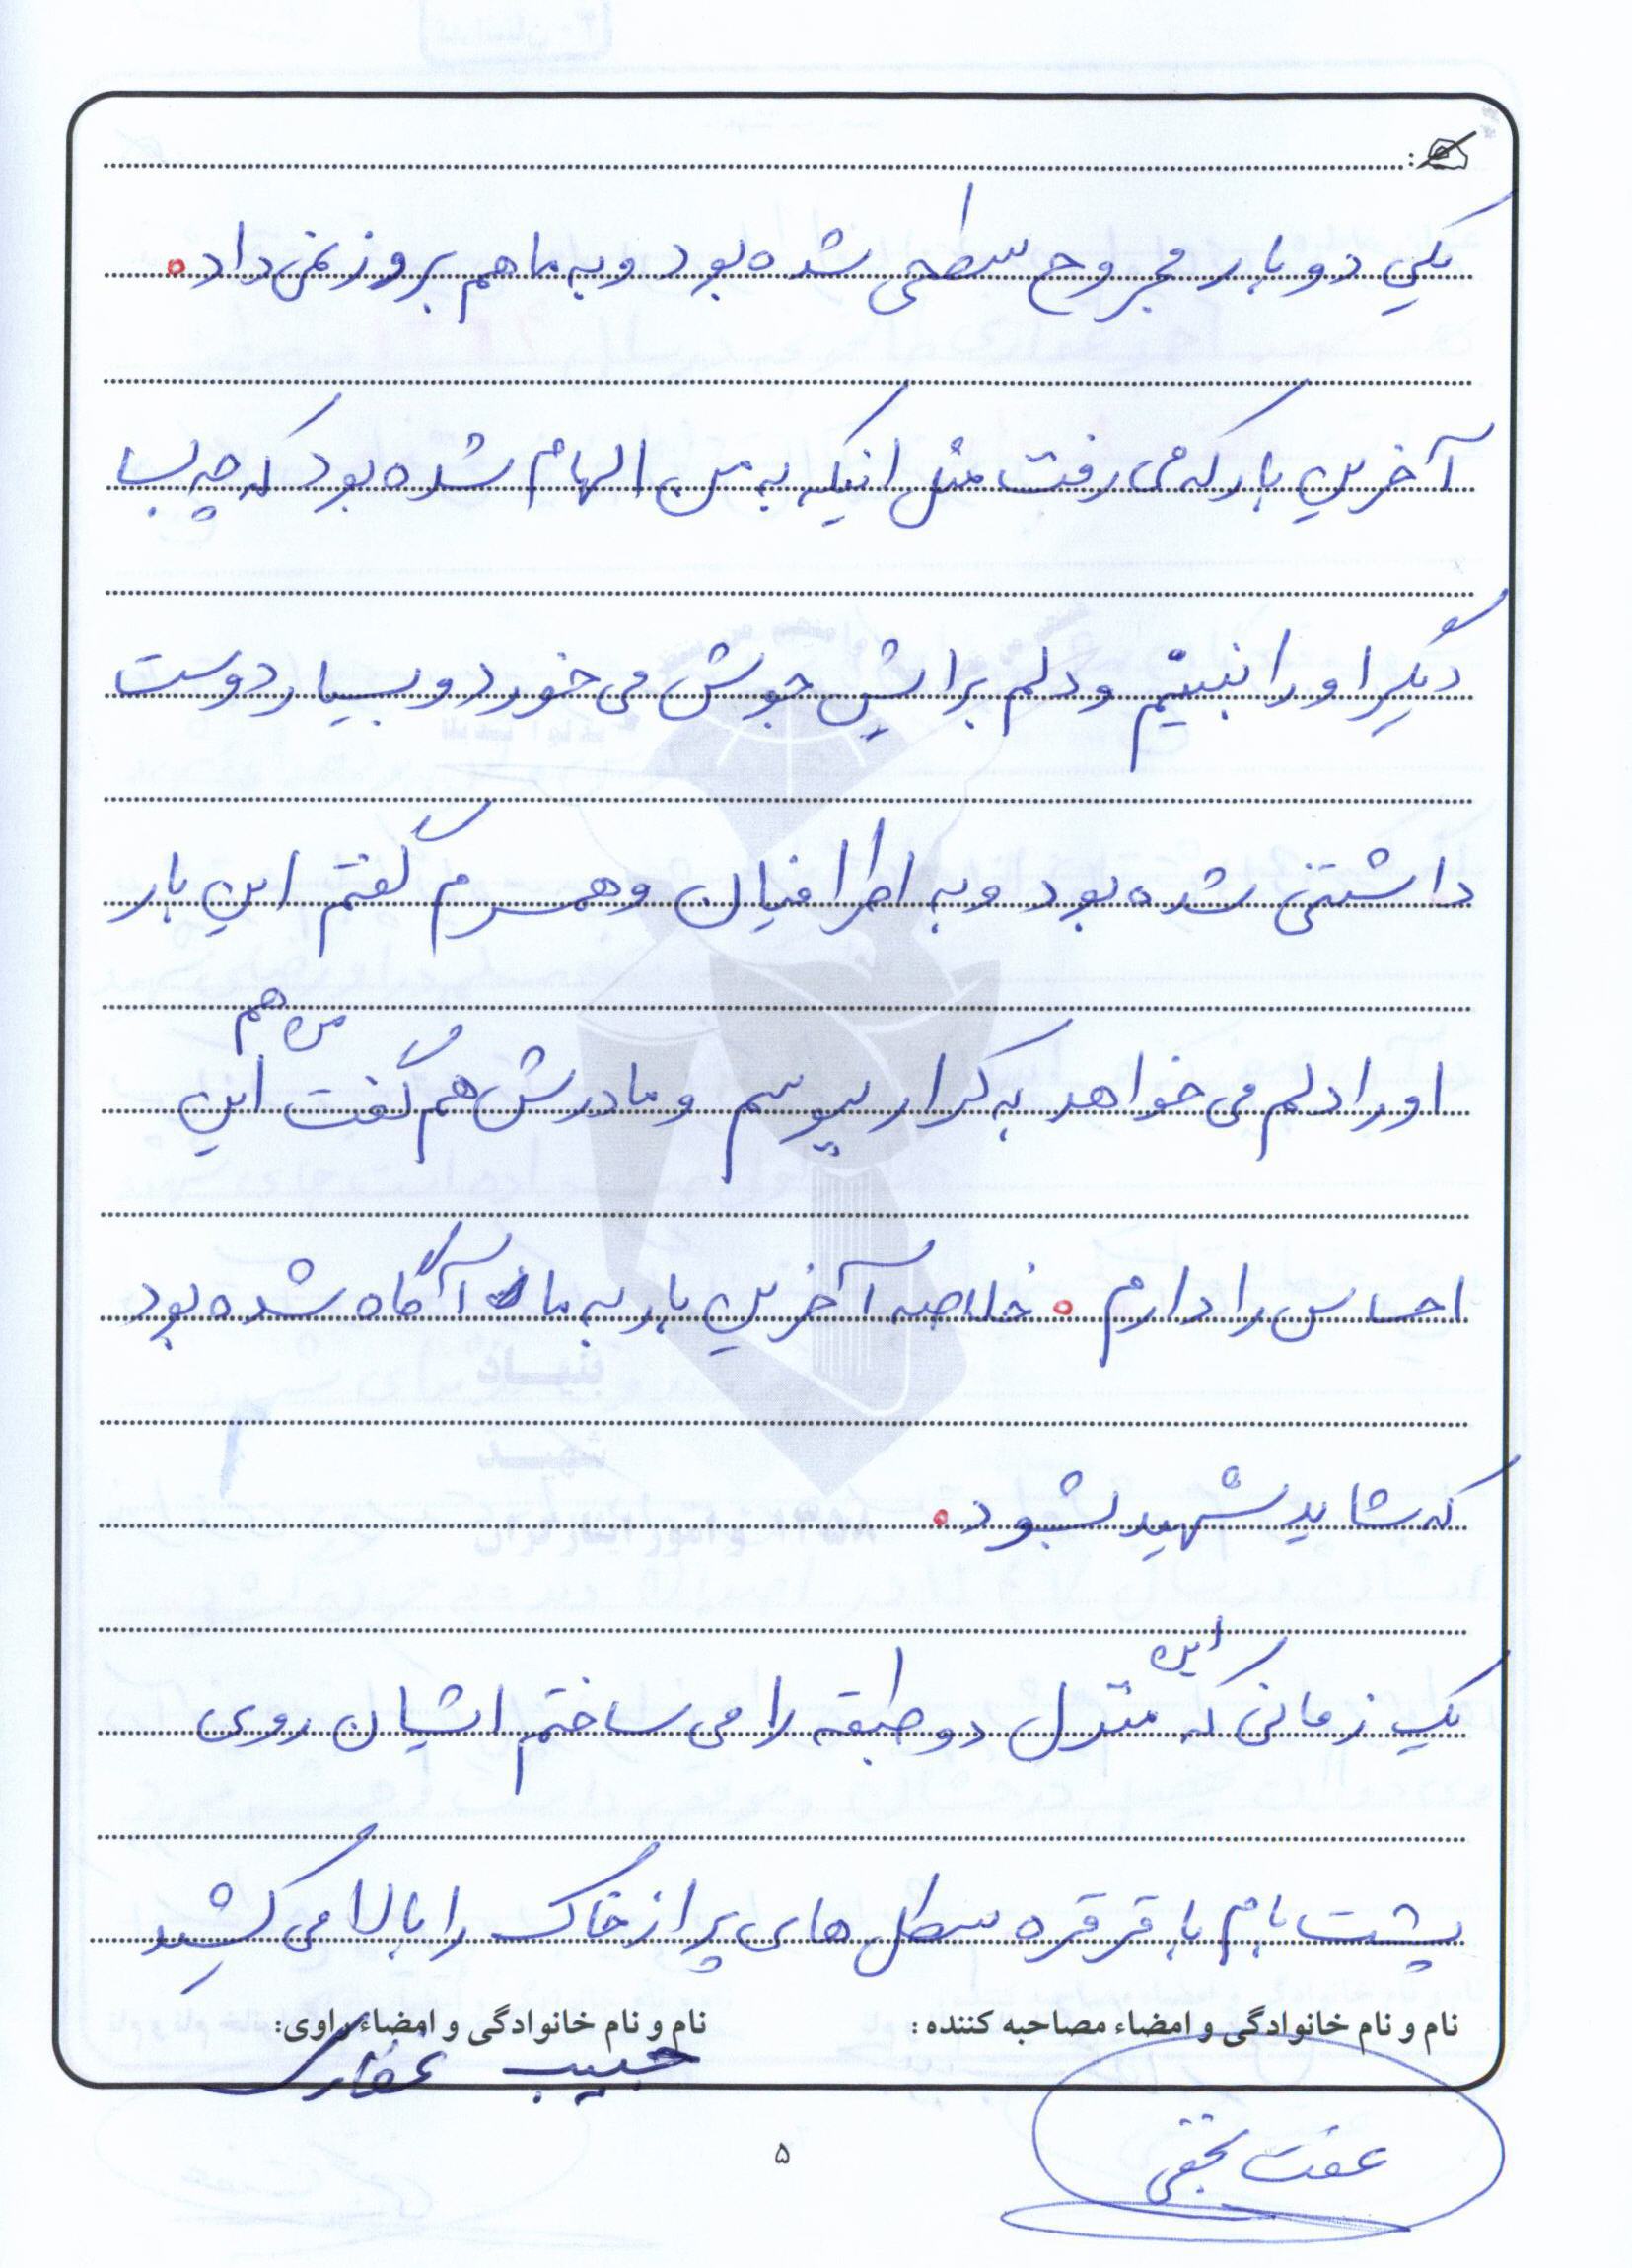 یکی دو بار مجروح سطحی شده بود و به ما هم بروز نمی داد.
آخرین بار که می رفت مثل اینکه به من الهام شده بود که چه بسا
دیگر او را نبینم و دلم برایش جوش می خورد و بسیار دوست
داشتنی شده بود و به اطرافیان و همسرم گفتم این بار
او را دلم می خواهد به کرار ببوسم و مادرش هم گفت من هم این
احساس را دارم. خلاصه آخرین بار به ما آگاه شده بود
که شاید شهید بشود.
یک زمانی که این منزل دو طبقه را می ساختم ایشان روی
پشت بام با قرقره سطل های پر از خاک را بالا می کشید
نام و نام خانوادگی و امضاء مصاحبه کننده :
نام و نام خانوادگی و امضاء راوی:
حبیب غفاری
عفت نجفی
۵